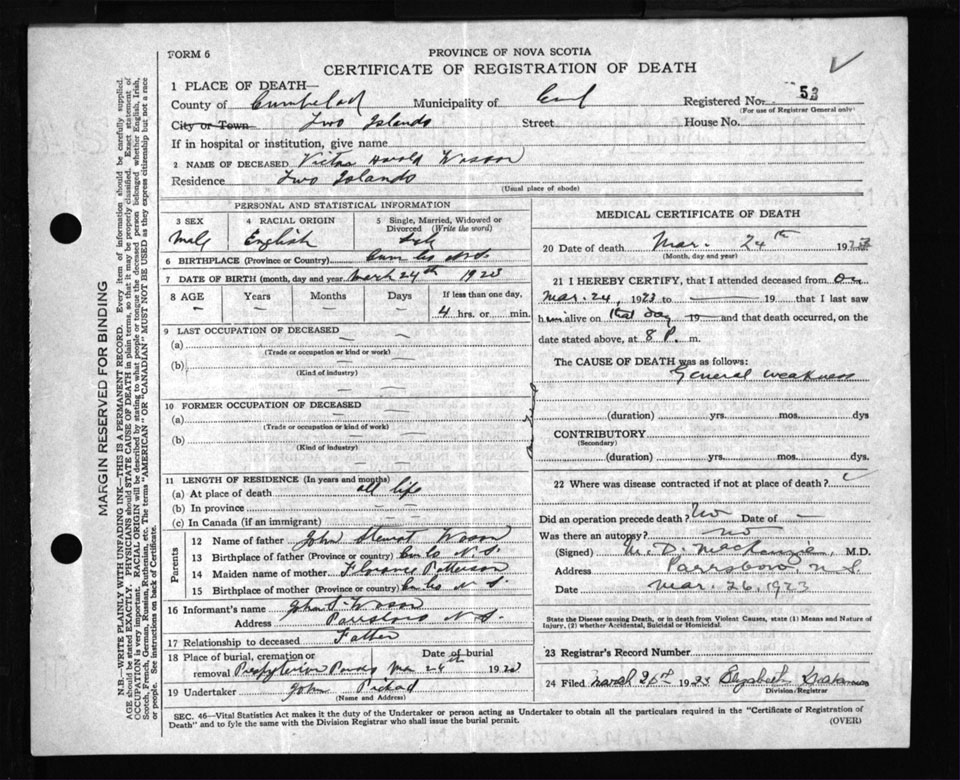 FORM 6
PROVINCE OF NOVA SCOTIA
CERTIFICATE OF REGISTRATION OF DEATH
1 PLACE OF DEATH—
County of Municipality of Registered No. 53
(For use of Registrar General only)
City or Town Two Islands Street House No.
If in hospital or institution, give name
2 NAME OF DECEASED Victor Harold Wasson
Residence Two Islands
(Usual place of abode)
PERSONAL AND STATISTICAL INFORMATION
3 SEX 4 RACIAL ORIGIN 5 Single, Married, Widowed or Divorced (Write the word)
Male English
6 BIRTHPLACE (Province or Country) Cum Co N.S.
7 DATE OF BIRTH (month, day and year March 24th 1923
8 AGE Years Months Days If less than one day,
— — — — 4 hrs. or min.
9 LAST OCCUPATION OF DECEASED —
(a) —
(Trade or occupation or kind or work)
(b) —
(Kind of industry)
10 FORMER OCCUPATION OF DECEASED
(a) —
(Trade or occupation or kind of work)
(b) —
(Kind of industry)
11 LENGTH OF RESIDENCE (In years and months)
(a) At place of death all life
(b) In province —
(c) In Canada (if an immigrant)
Parents
12 Name of father John Stewart Wasson
13 Birthplace of father (Province or country) Cum Co N.S.
14 Maiden name of mother Florance Patterson
15 Birthplace of mother (Province or country) Cum Co N S.
16 Informant's name John S. Wasson
Address Parrsboro N S.
17 Relationship to deceased Father
18 Place of burial, cremation or removal Presbyterian Date of burial Mar 26th 1923
19 Undertaker John
(Name and Address)
MEDICAL CERTIFICATE OF DEATH
20 Date of death Mar. 24th 1923
(Month, day and year)
21 I HEREBY CERTIFY, that I attended deceased from On
Mar. 24, 1923 to — 19 — that I last saw
him alive on that day 19 — and that death occurred, on
date stated above, at 8 P. m.
The CAUSE OF DEATH was as follows:
General weakness
(duration) yrs. mos. dys
CONTRIBUTORY
(Secondary)
(duration) yrs. mos. dys.
22 Where was disease contracted if not at place of death?
Did an operation precede death? No Date of —
Was there an autopsy? no
(Signed) M. D. MacKenzie, M.D.
Address Parrsboro, N.S.
Date Mar. 26, 1923
State the Disease causing Death, or in death from Violent Causes, state (1) Means and Nature of
Injury, (2) whether Accidental, Suicidal or Homicidal.
23 Registrar's Record Number
24 Filed March 1923 Elizabeth
Division Registrar
SEC. 46—Vital Statistics Act makes it the duty of the Undertaker or person acting as Undertaker to obtain all the particulars required in the "Certificate of Registration of
Death" and to fyle the same with the Division Registrar who shall issue the burial permit. (OVER)
MARGIN RESERVED FOR BINDING
N.B.—WRITE PLAINLY WITH UNFADING INK—THIS IS A PERMANENT RECORD. Every item of information should be carefully supplied.
AGE should be stated EXACTLY. PHYSICIANS should STATE CAUSE OF DEATH in plain terms, so that it may be properly classified. Exact statement of
OCCUPATION is very important. RACIAL ORIGIN will be described by stating to what people or tongue the deceased person belonged whether English, Irish,
Scotch, French, German, Russian, Ruthenian, etc. The terms "AMERICAN" OR "CANADIAN" MUST NOT BE USED as they express citizenship but not a race
or people. See instructions on back of Certificate.